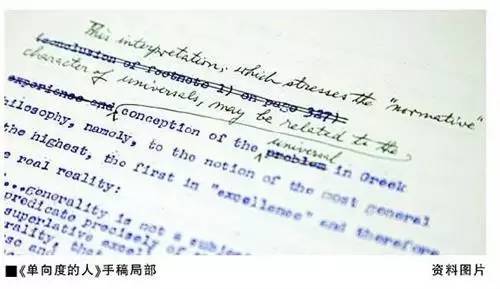 This interpretation, which stresses the "normative"
conclusion of footnote 1) on page 327)
character of universals, may be related to the
experience and conception of the universal problem in Greek
hilosophy, namely, to the notion of the most general
the highest, the first in "excellence" and therefore
e real reality:
...generality is not a subje
predicate precisely of
superlative excell
rality, that
se and
■《单向度的人》手稿局部
资料图片